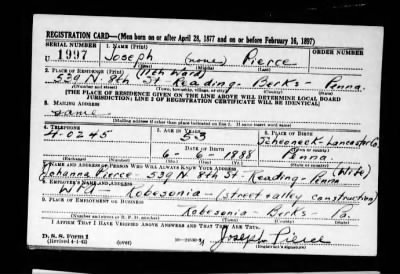 REGISTRATION CARD—(Men born on or after April 28, 1877 and on or before February 16, 1897)
SERIAL NUMBER 1. NAME (Print) ORDER NUMBER
U 1997 Joseph (none) Pierce
2. PLACE OF RESIDENCE (Print) (11th Ward)
539 N. 8th St Reading - Berks - Penna.
(Number and street) (Town, township, village, or city) (County) (State)
[THE PLACE OF RESIDENCE GIVEN ON THE LINE ABOVE WILL DETERMINE LOCAL BOARD
JURISDICTION; LINE 2 OF REGISTRATION CERTIFICATE WILL BE IDENTICAL]
3. MAILING ADDRESS
Same
[Mailing address if other than place indicated on line 2. If same insert word same]
4. TELEPHONE 5. AGE IN YEARS 6. PLACE OF BIRTH
4-0245 53 Scheoneck-Lancaster Co
DATE OF BIRTH
6-6-1888 Penna.
(Exchange) (Number) (Mo.) (Day) (Yr.) (State or country)
7. NAME AND ADDRESS OF PERSON WHO WILL ALWAYS KNOW YOUR ADDRESS (Wife)
Johanna Pierce - 539 N 8th St - Reading - Penna
8. EMPLOYER'S NAME AND ADDRESS
WPA - Robesonia - (street & alley construction)
9. PLACE OF EMPLOYMENT OR BUSINESS
Robesonia - Berks - Pa.
(Number and street or R. F. D. number) (Town) (County) (State)
I AFFIRM THAT I HAVE VERIFIED ABOVE ANSWERS AND THAT THEY ARE TRUE.
D. S. S. Form 1
(Revised 4-1-42) (over) Joseph Pierce